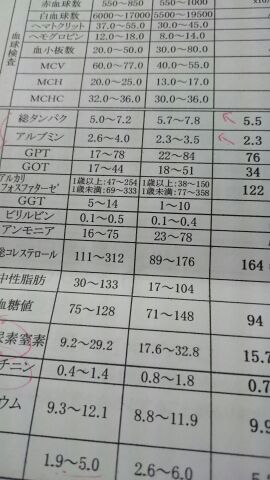 赤血球数 550～850 550～1000
白血球数 6000～17000 5500～19500
ヘマトクリット 37.0～55.0 30.0～45.0
ヘモグロビン 12.0～18.0 8.0～14.0
血小板数 20.0～50.0 30.0～80.0
MCV 60.0～77.0 40.0～55.0
MCH 20.0～25.0 13.0～17.0
MCHC 32.0～36.0 30.0～36.0
血球検査
総タンパク 5.0～7.2 5.7～7.8 5.5
アルブミン 2.6～4.0 2.3～3.5 2.3
GPT 17～78 22～84 76
GOT 17～44 18～51 34
アルカリフォスファターゼ 1歳以上:47～254 1歳以上:38～150 122
1歳未満:69～333 1歳未満:77～358
GGT 5～14 1～10
ビリルビン 0.1～0.5 0.1～0.4
アンモニア 16～75 23～78
総コレステロール 111～312 89～176 164
中性脂肪 30～133 17～104
血糖値 75～128 71～148 94
尿素窒素 9.2～29.2 17.6～32.8 15.7
チニン 0.4～1.4 0.8～1.8 0.7
ウム 9.3～12.1 8.8～11.9 9.9
1.9～5.0 2.6～6.0